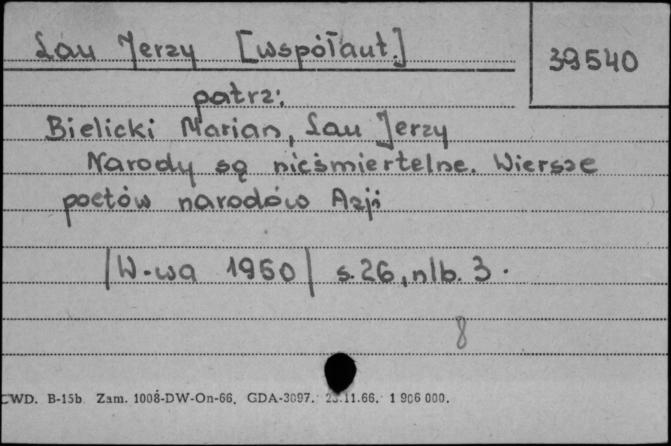 Lau Jerzy [współaut.]
39540
patrz:
Bielicki Marian, Lau Jerzy
Narody są nieśmiertelne. Wiersze
poetów narodów Azji
|W-wa 1950| s. 26, nlb. 3.
8
CWD. B-15b Zam. 1008-DW-On-66. GDA-3097. 23.11.66. 1 906 000.